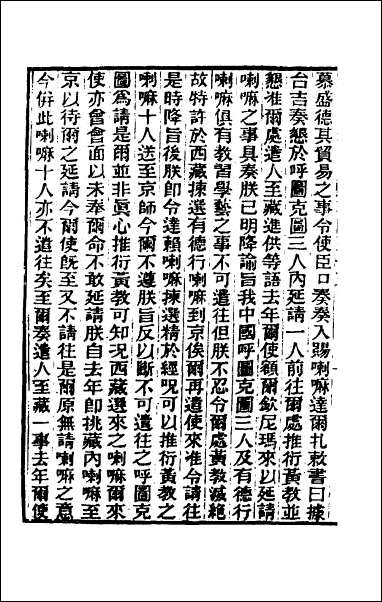 慕盛德其貿易之事令使臣口奏奏入賜喇嘛達爾扎敕書曰據
台吉奏懇於呼圖克圖三人內延請一人前往爾處推衍黃教並
懇准爾處遣人至藏進供等語去年爾使額爾欽尼瑪來以延請
喇嘛之事具奏朕已明降諭旨我中國呼圖克圖三人及有德行
喇嘛俱有教習學藝之事不可遣往但朕不忍令爾處黃教滅絕
故特許於西藏揀選有德行喇嘛到京俟爾再遣使來准令請往
是時降旨後朕卽令達賴喇嘛揀選精於經呪可以推衍黃教之
喇嘛十人送至京師今爾不遵朕旨反以斷不可遣往之呼圖克
圖爲請是爾並非眞心推衍黃教可知况西藏選來之喇嘛爾來
使亦曾會面以未奉爾命不敢延請朕自去年卽挑藏內喇嘛至
京以待爾之延請今爾使旣至又不請往是爾原無請喇嘛之意
今併此喇嘛十人亦不遣往矣至爾奏遣人至藏一事去年爾使